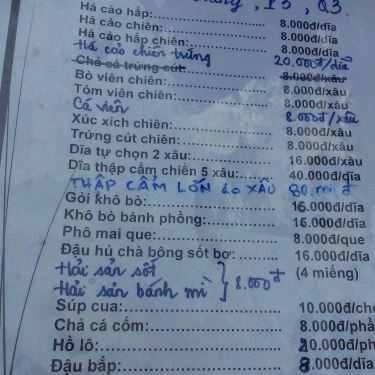 , P5 , Q3.
Há cảo hấp:..................8.000đ/dĩa
Há cảo chiên:..................8.000đ/dĩa
Há cảo chiên:..................8.000đ/dĩa
Há cảo chiên trứng 20.000đ/dĩa
Chả cá trứng cút:..................8.000đ/xâu
Bò viên chiên:..................8.000đ/xâu
Tôm viên chiên:..................8.000đ/xâu
Cá viên 8.000đ/xâu
Xúc xích chiên:..................8.000đ/xâu
Trứng cút chiên:..................8.000đ/xâu
Dĩa tự chọn 2 xâu:..................16.000đ/dĩa
Dĩa thập cẩm chiên 5 xâu:..................40.000đ/dĩa
THẬP CẨM LỚN 10 XÂU 80
Gỏi khô bò:..................16.000đ/dĩa
Khô bò bánh phồng:..................16.000đ/dĩa
Phô mai que:..................8.000đ/que
Đậu hủ chà bông sốt bơ:..................16.000đ/dĩa
Hải sản sốt (4 miếng)
Hải sản bánh mì } 8.000đ
Súp cua:..................10.000/ch
Chả cá cốm:..................8.000đ/ph
Hồ lô:..................20.000/ph
Đậu bắp:..................8.000/dĩa